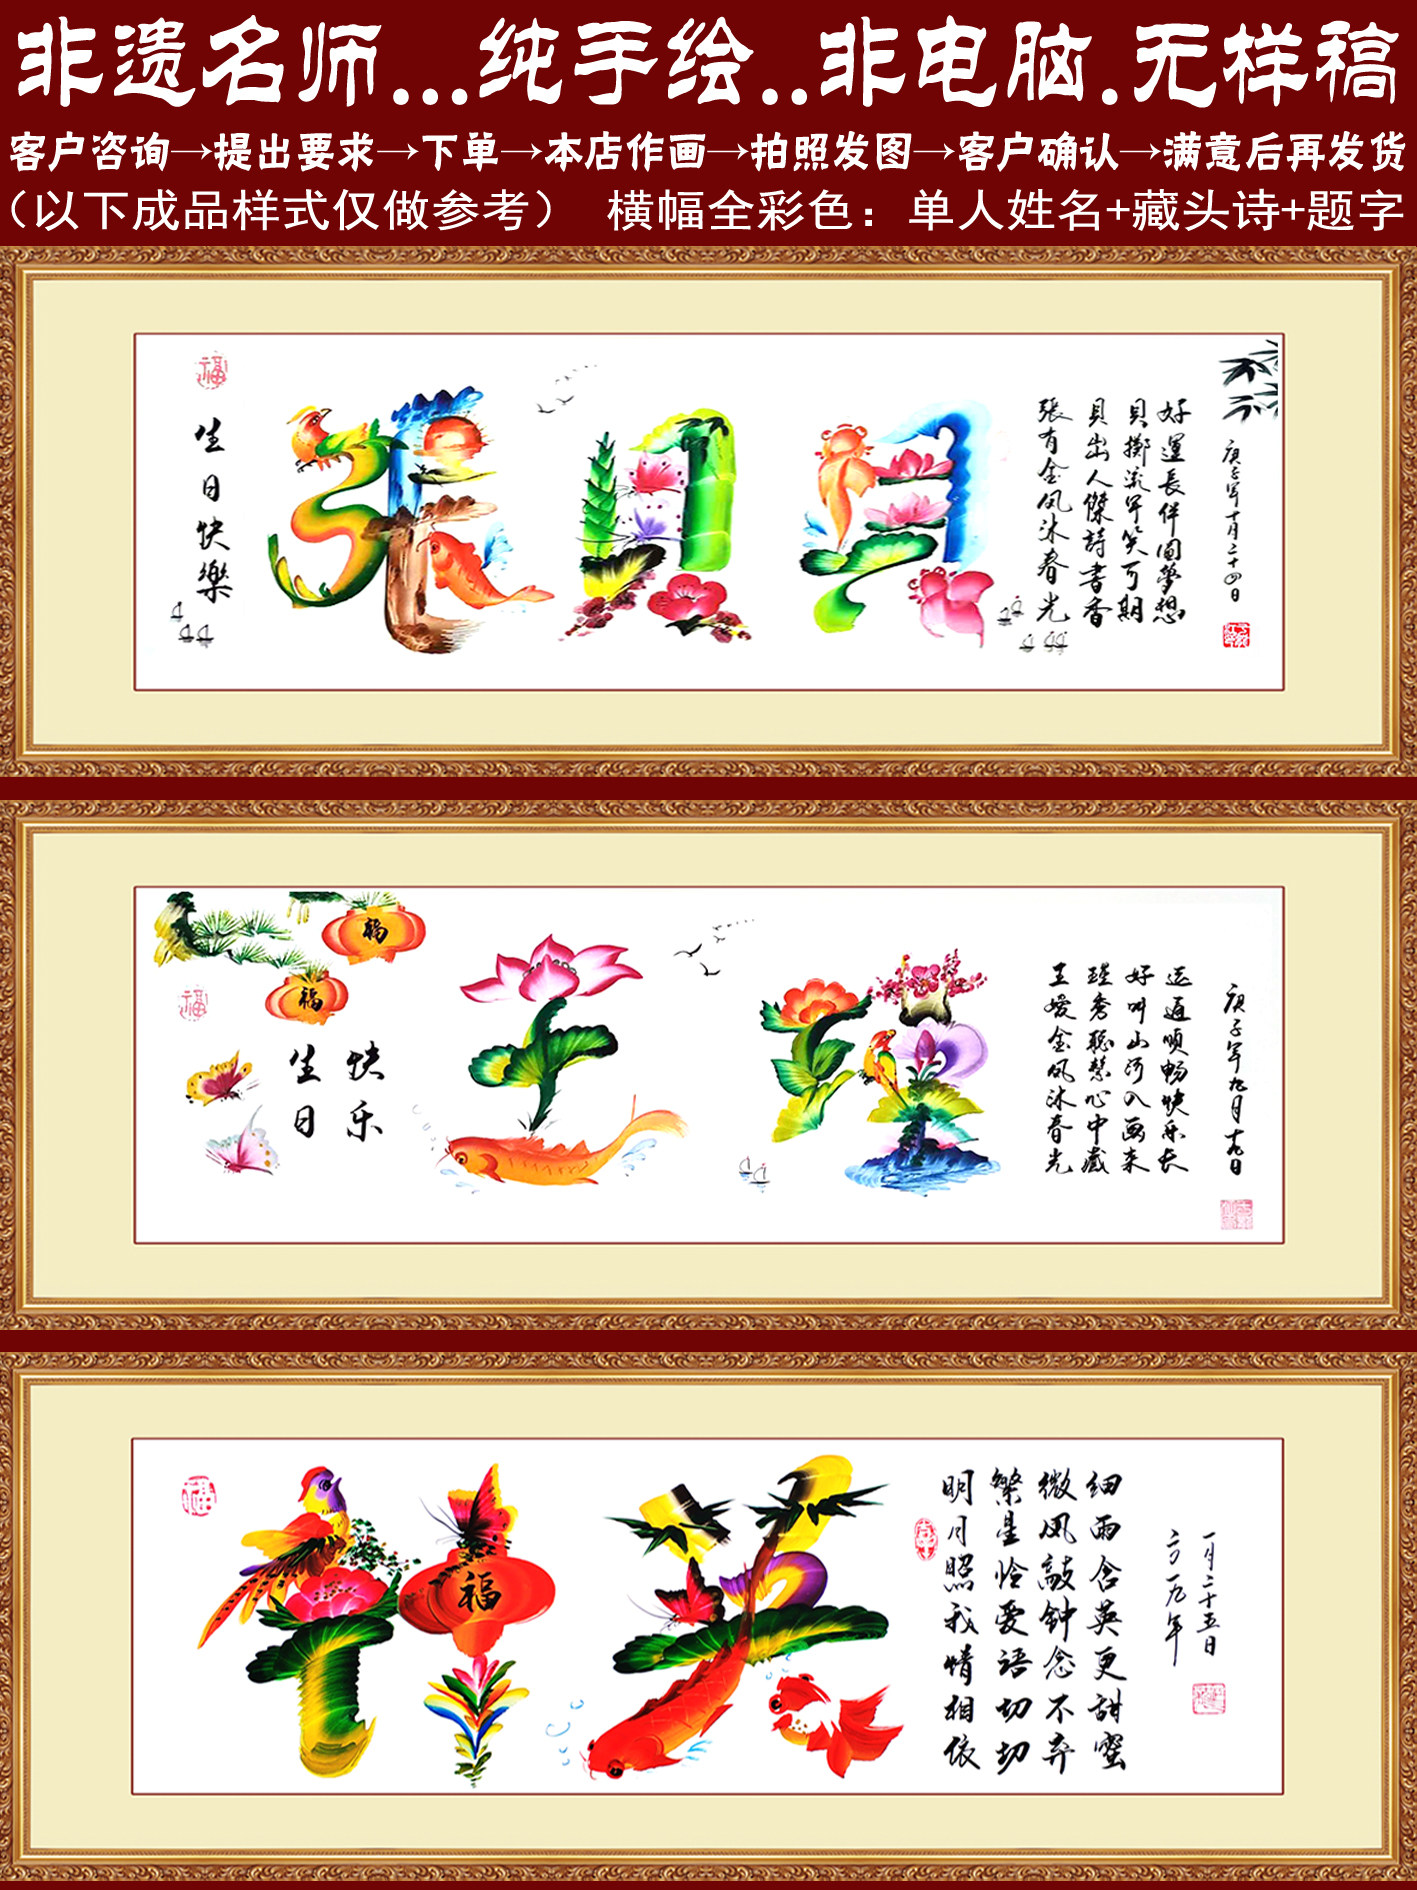 非遗名师...纯手绘..非电脑.无样稿
客户咨询→提出要求→下单→本店作画→拍照发图→客户确认→满意后再发货
（以下成品样式仅做参考） 横幅全彩色：单人姓名+藏头诗+题字
福
生日快樂
張有金凤沐春光
貝出人傑詩書香
貝擲流年笑可期
好運長伴圓夢想
庚子年十月二十四日
福
福
福
生日
快乐
金凤沐春光
秀聪慧心中藏
好叫山河入画来
运通顺畅快乐长
庚子年九月十九日
福
福
明月照我情相依
繁星怜爱语切切
微风敲钟念不弃
细雨含英更甜蜜
二〇一九年
一月二十五日